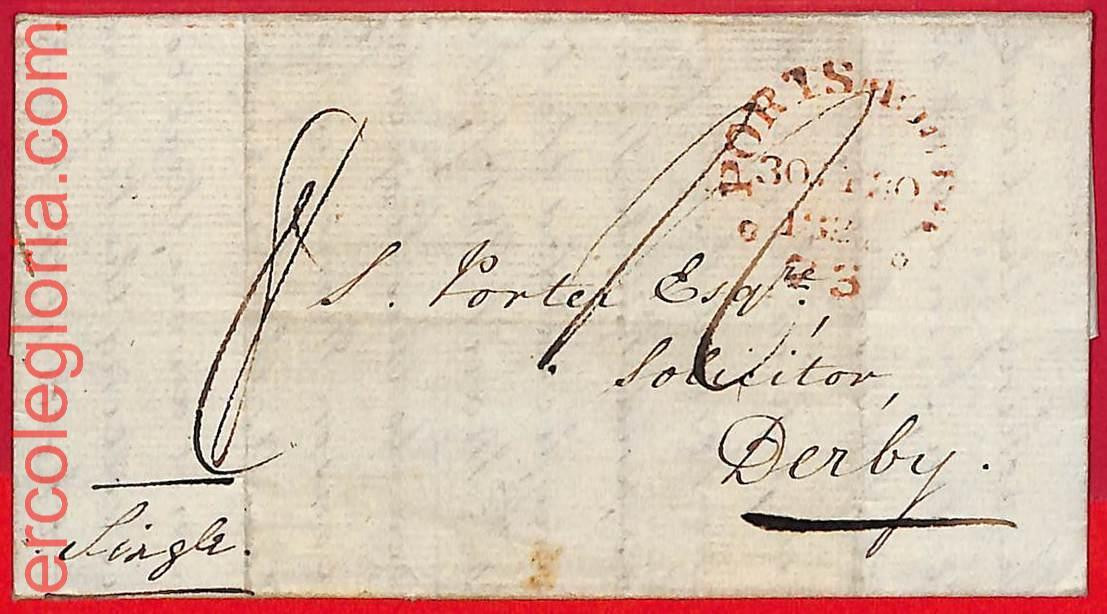 ercolegloria.com
PORTS
30
S. Porter Esqre,
Solicitor,
Derby.
Single.